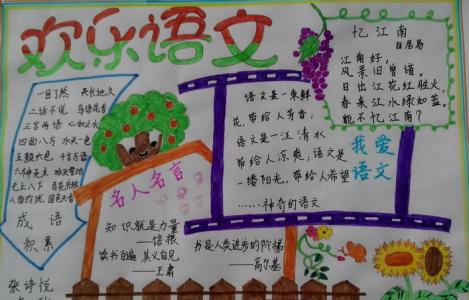 欢乐语文
一目了然 天长地久
二话不说 鸟语花香
三言两语
四面八方
七上八下 百花齐放
成语
积累
张诗悦
名人名言
知识就是力量
——培根
读书百遍 其义自见
——王肃
书是人类进步的阶梯
——高尔基
语文是一束鲜
花,带给人芳香,
语文是一汪清水
带给人凉爽,语文是
一缕阳光,带给人希望
……神奇的语文
忆江南
白居易
江南好,
风景旧曾谙。
日出江花红胜火
春来江水绿如蓝。
能不忆江南?
我爱
语文